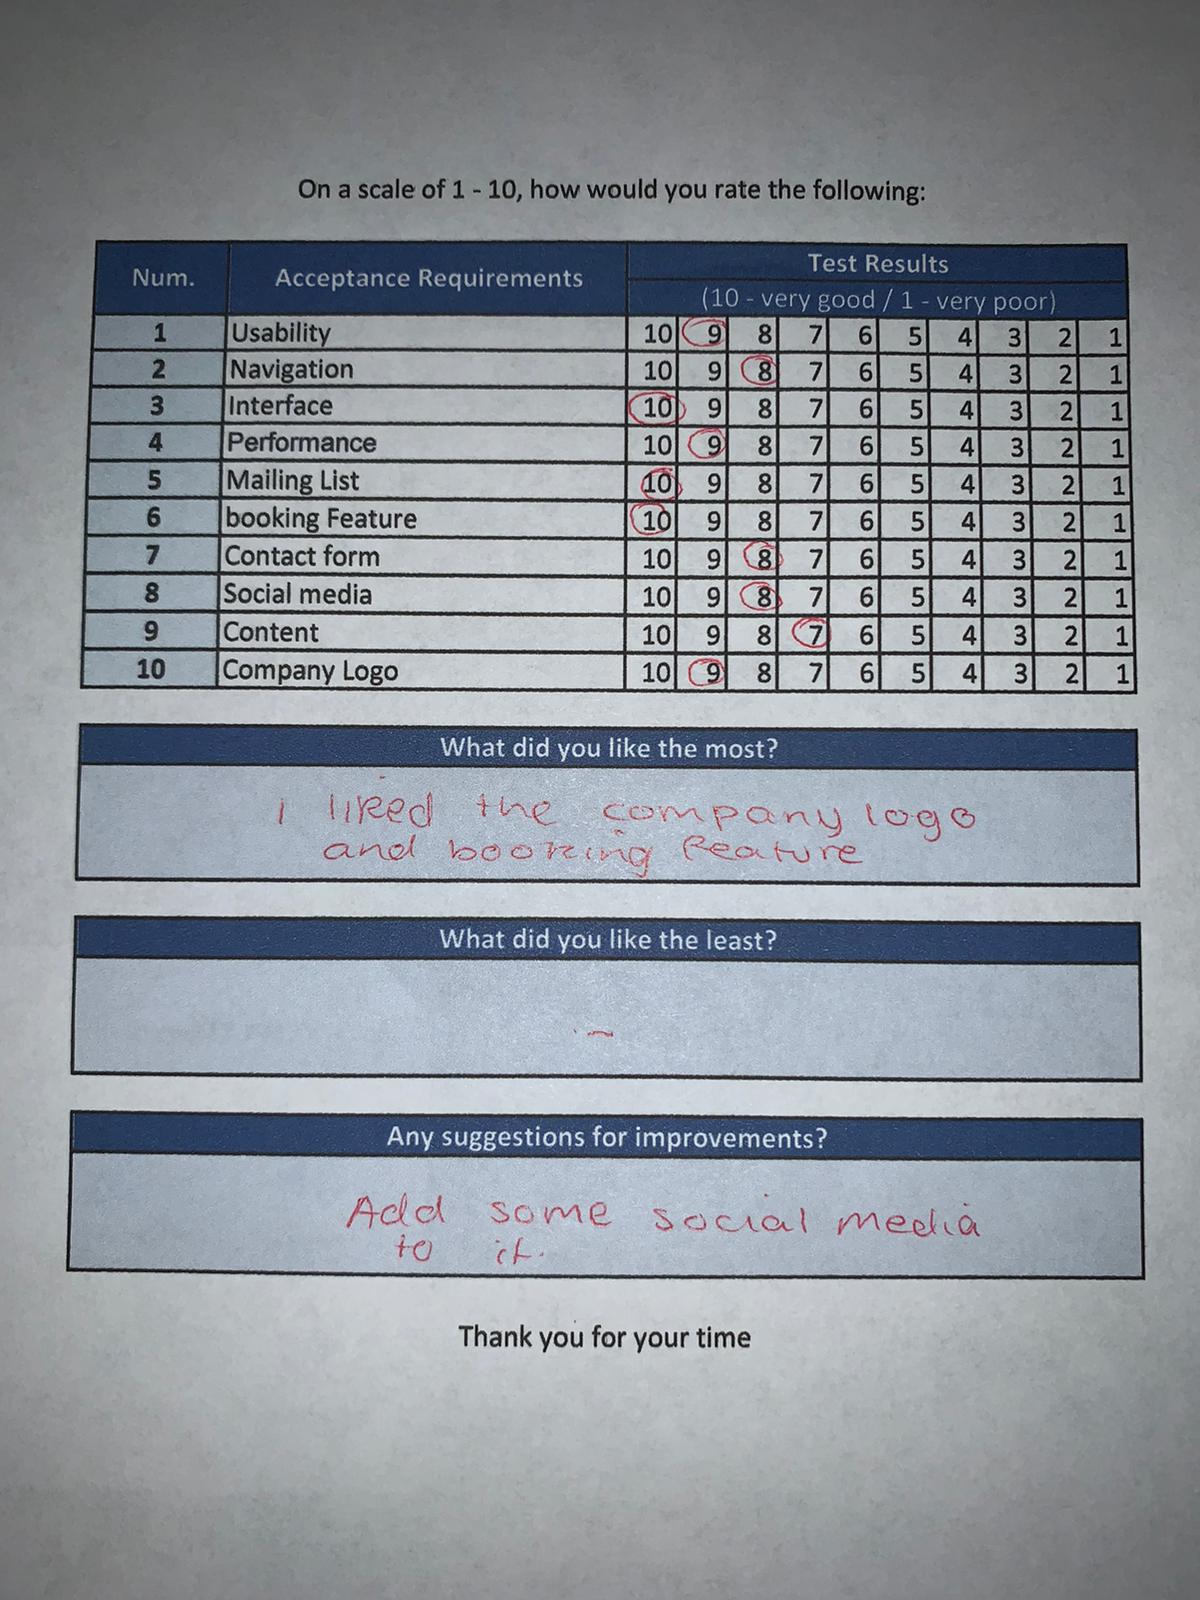 On a scale of 1 - 10, how would you rate the following:
Num. Acceptance Requirements Test Results
(10 - very good / 1 - very poor)
1 Usability 10 9 8 7 6 5 4 3 2 1
2 Navigation 10 9 8 7 6 5 4 3 2 1
3 Interface 10 9 8 7 6 5 4 3 2 1
4 Performance 10 9 8 7 6 5 4 3 2 1
5 Mailing List 10 9 8 7 6 5 4 3 2 1
6 booking Feature 10 9 8 7 6 5 4 3 2 1
7 Contact form 10 9 8 7 6 5 4 3 2 1
8 Social media 10 9 8 7 6 5 4 3 2 1
9 Content 10 9 8 7 6 5 4 3 2 1
10 Company Logo 10 9 8 7 6 5 4 3 2 1
What did you like the most?
I liked the company logo
and booking feature
What did you like the least?
-
Any suggestions for improvements?
Add some social media
to it.
Thank you for your time